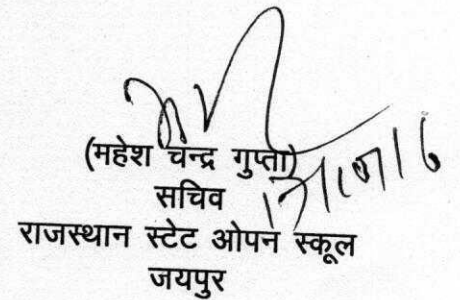 (महेश चन्द्र गुप्ता)
सचिव
राजस्थान स्टेट ओपन स्कूल
जयपुर